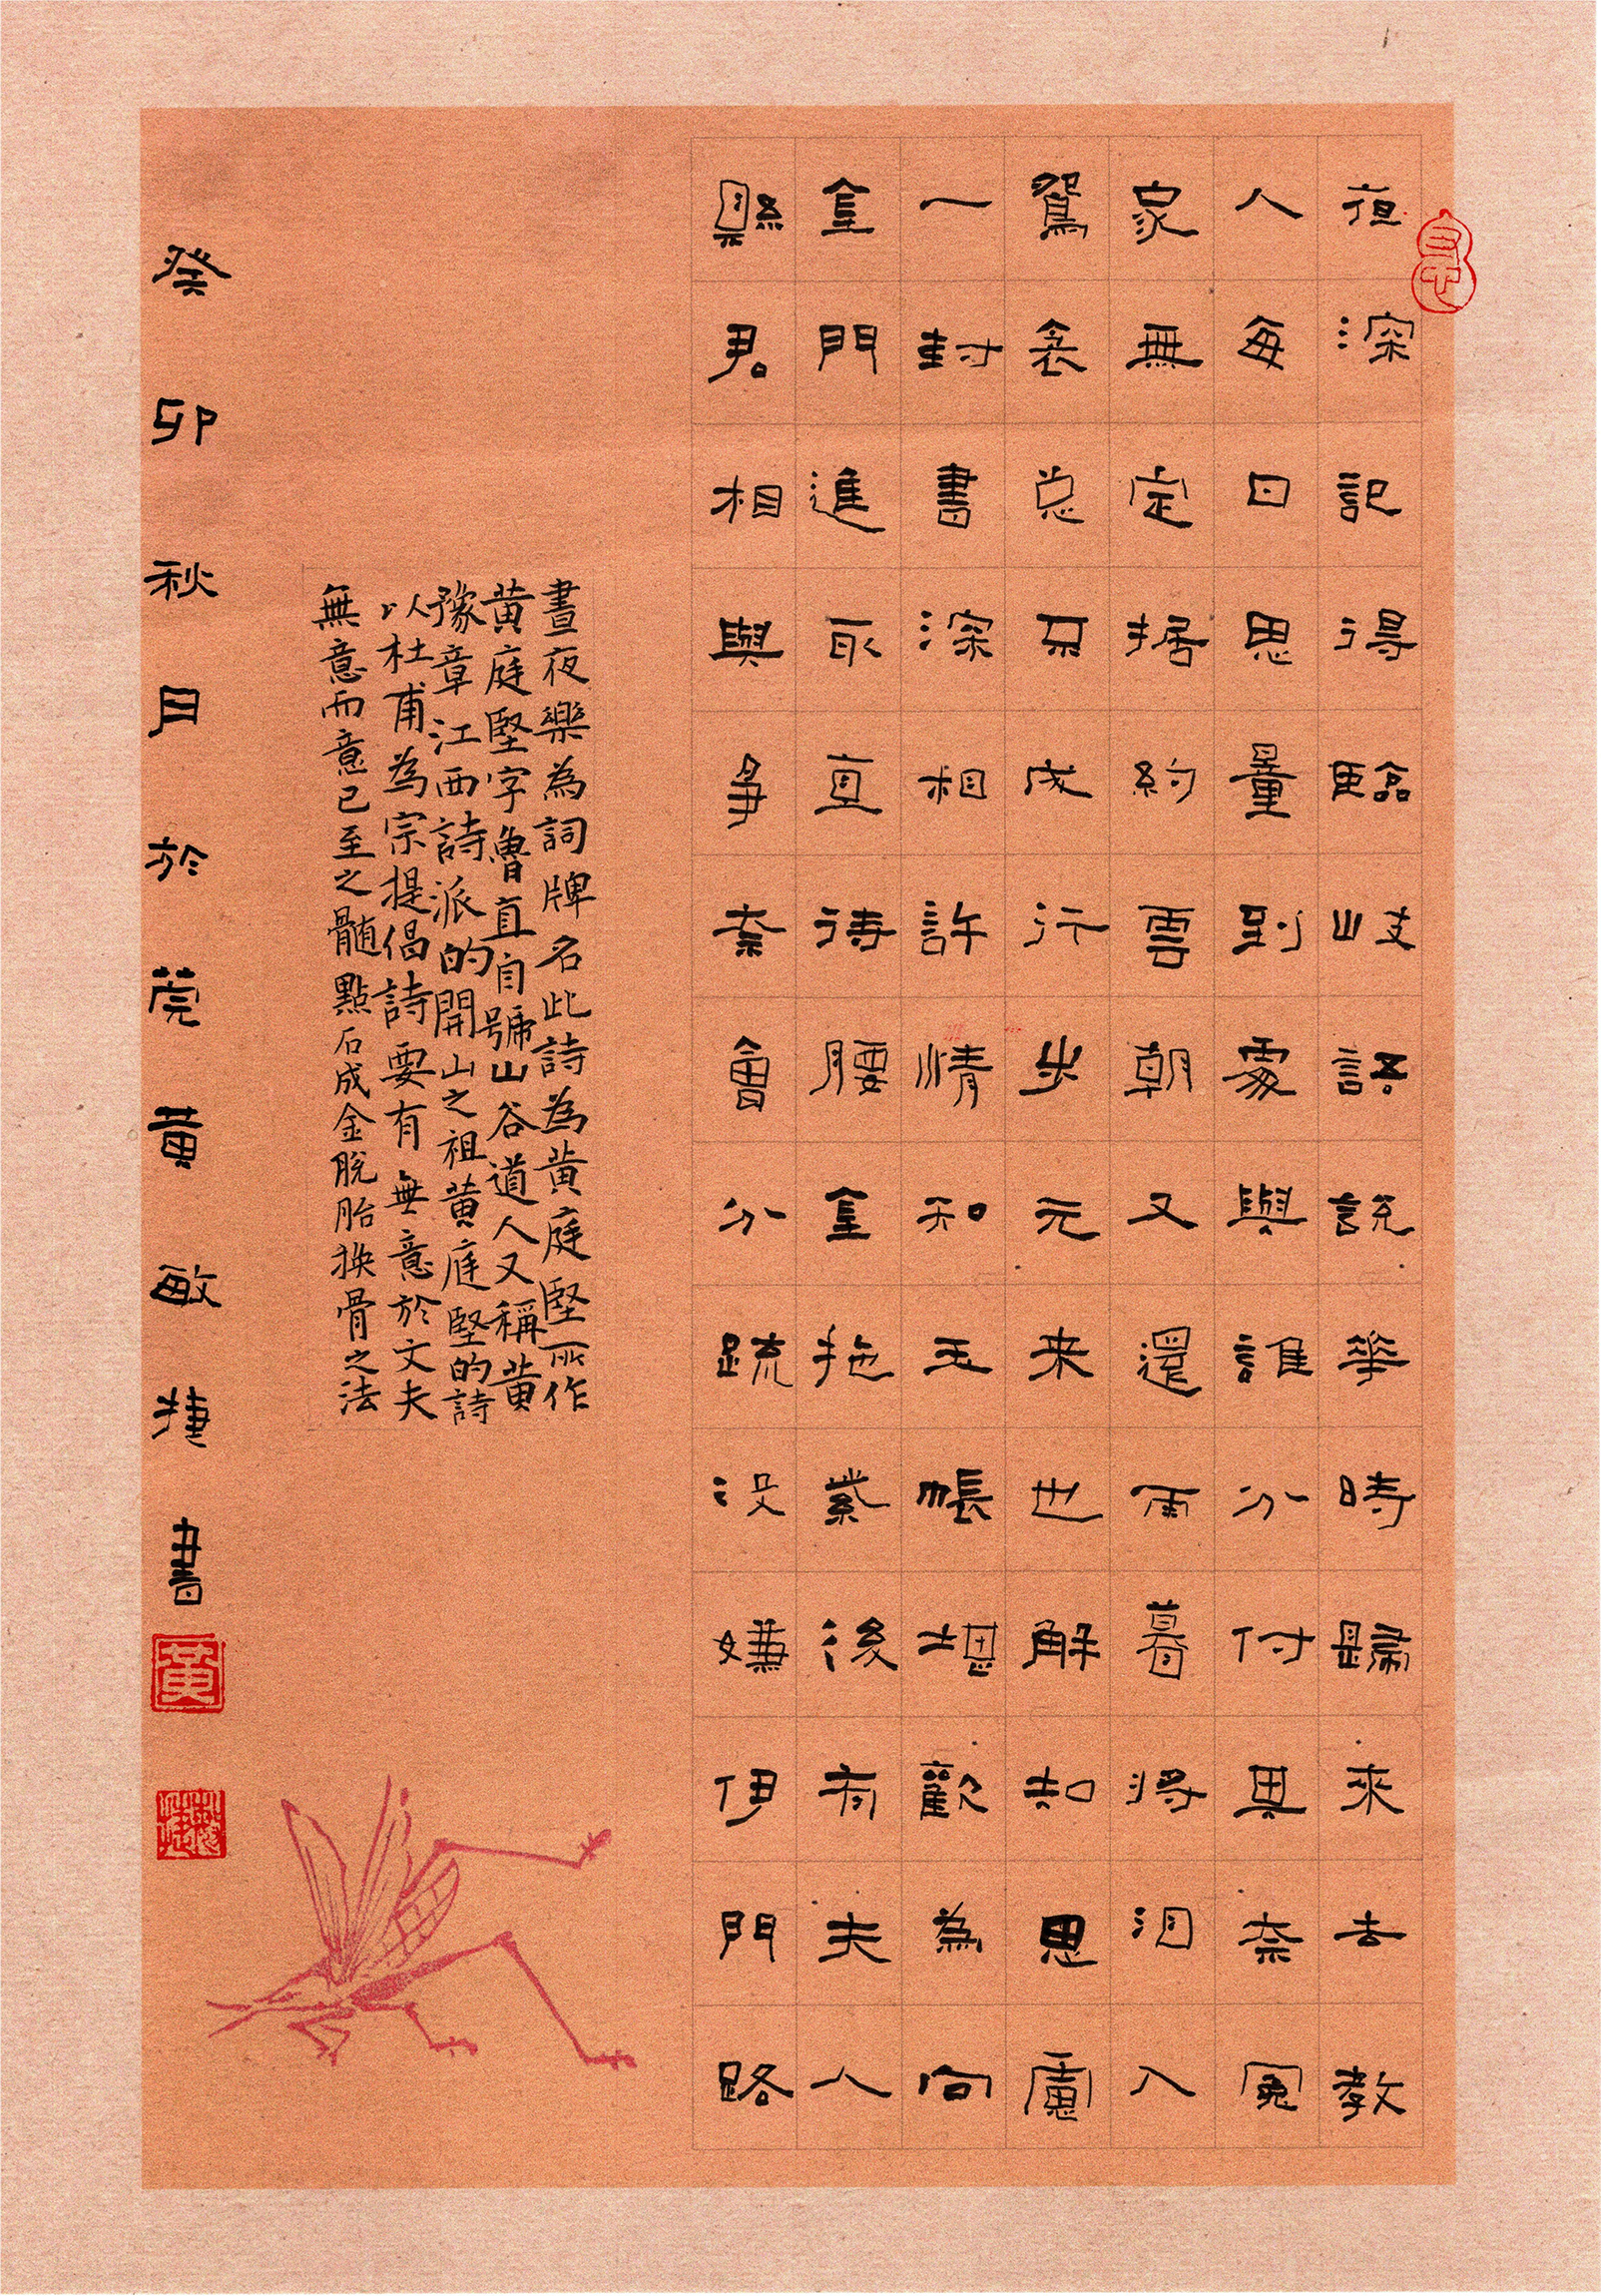 夜深記得臨岐語說華時歸來去教
人每日思量到處與誰分付其奈冤
家無定据約雲朝又還雨暮将泪入
鴛衾总不成行步元来也解知思慮
一封書深相許情知玉帳堪歡為向
金門進取直待腰金拖紫後有夫人
縣君相與爭奈會分疏没嫌伊門路
晝夜樂為詞牌名此詩為黄庭堅所作
黄庭堅字魯直自號山谷道人又稱黄
豫章江西詩派的開山之祖黄庭堅的詩
以杜甫為宗提倡詩要有無意於文夫
無意而意已至之髓點石成金脫胎換骨之法
癸卯秋月於莞黄敏捷書
黄
敏捷